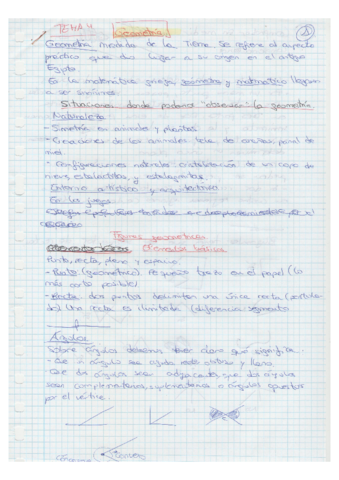 TEMA 4 Geometría
Geometría medida de la Tierra. Se refiere al aspecto
practico que dio lugar a su origen en el antiguo
Egipto.
En la matemática griega geometra y matemático llegaron
a ser sinónimos.
Situaciones donde podemos "observar" la geometría
Naturaleza
- Simetría en animales y plantas.
- Creaciones de los animales tela de araña, panal de
miel
- Configuraciones naturales cristalización de un copo de
nieve, estalactitas, y estalagmitas.
Entorno artístico y arquitectónico
En los juegos
Figuras geométricas
Elementos básicos
Punto, recta, plano y espacio
- Punto (geométrico) pequeño trazo en el papel (lo
más corto posible)
- Recta dos puntos determinan una única recta
Una recta es ilimitada (diferencia segmento
Ángulos
Sobre ángulos debemos tener claro qué significa
- Que un ángulo sea agudo, recto, obtuso y llano
- Que dos ángulos sean adyacentes, que dos ángulos
sean complementarios, suplementarios o ángulos opuestos
por el vértice.